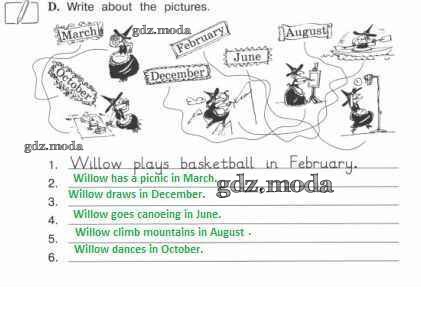 D. Write about the pictures.
March
gdz.moda
February
August
June
December
October
gdz.moda
1. Willow plays basketball in February.
2. Willow has a picnic in March.
gdz.moda
3. Willow draws in December.
4. Willow goes canoeing in June.
5. Willow climb mountains in August .
6. Willow dances in October.